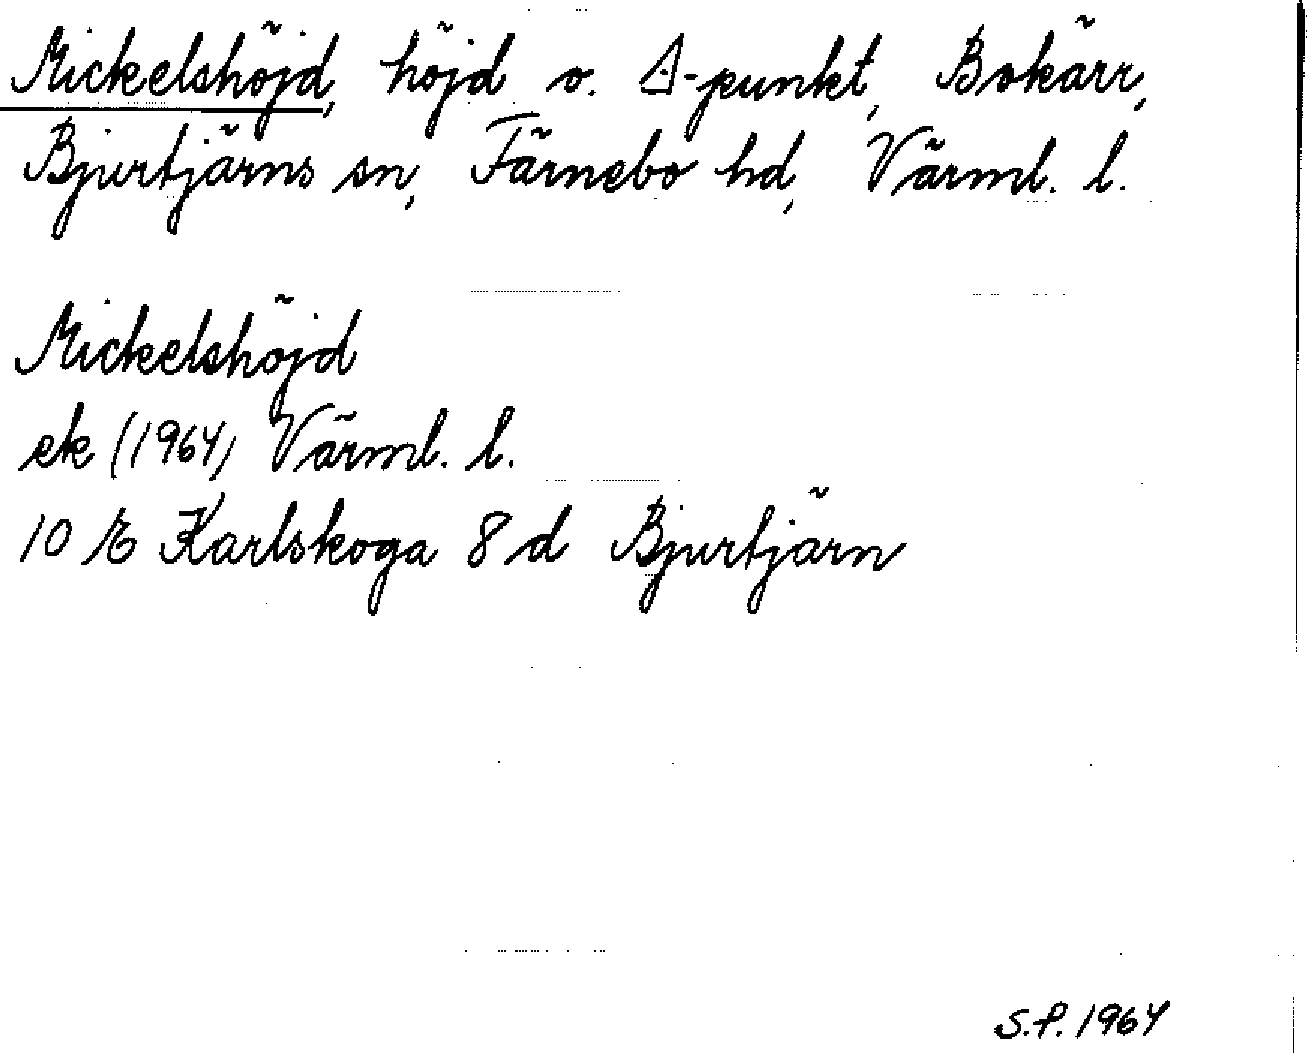 Mickelshöjd, höjd o. △-punkt, Bokärr,
Bjurtjärns sn, Färnebo hd, Värml. l.
Mickelshöjd
ek (1964) Värml. l.
10 E Karlskoga 8 d Bjurtjärn
S.P. 1964